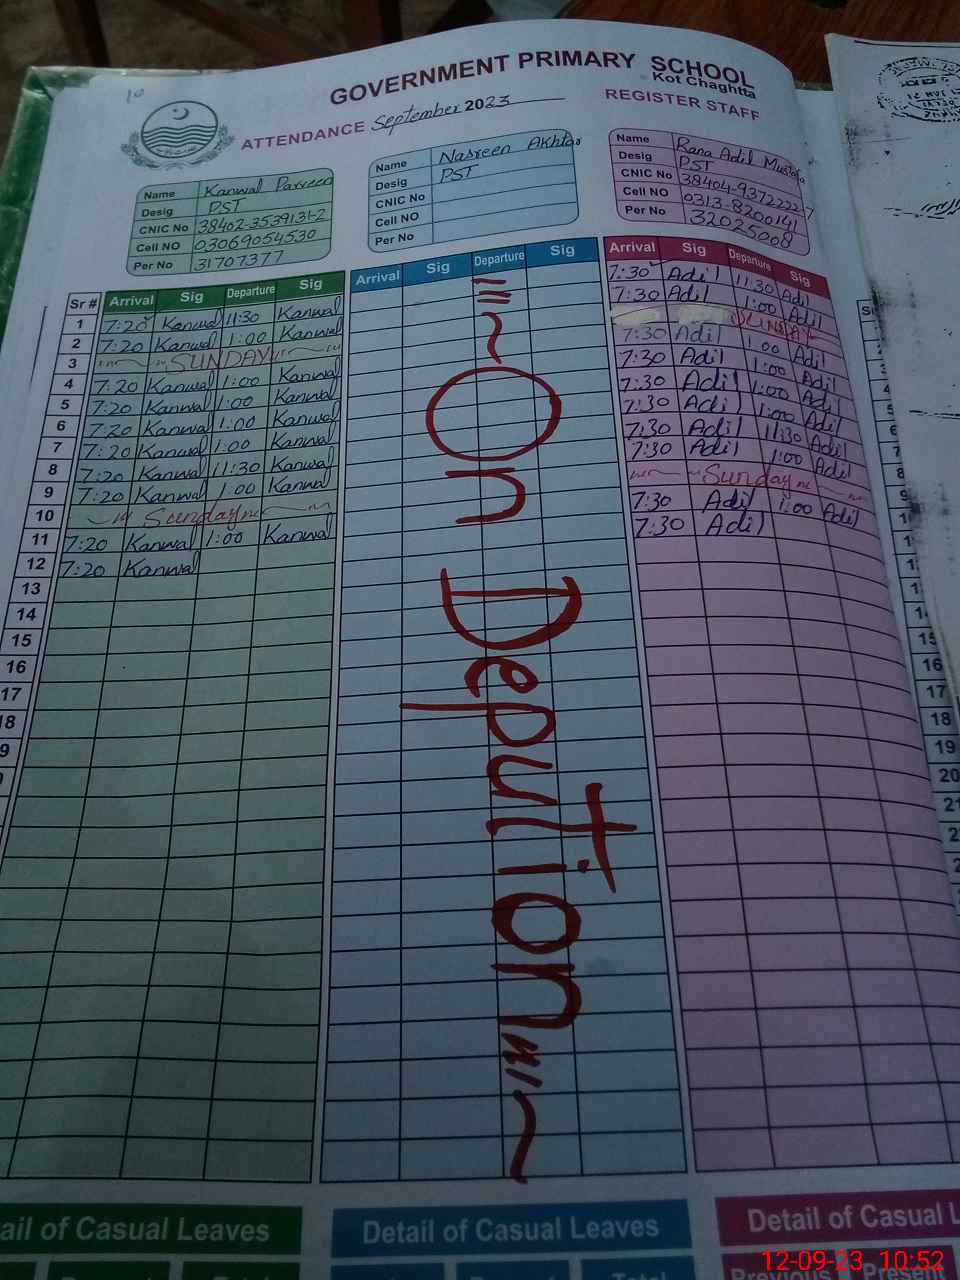 10
GOVERNMENT PRIMARY SCHOOL
Kot Chaghtta
ATTENDANCE September 2023 REGISTER STAFF
Name Kanwal Parveen
Desig PST
CNIC No 38402-3539131-2
Cell NO 03069054530
Per No 31707377
Name Nasreen Akhtar
Desig PST
CNIC No
Cell NO
Per No
Name Rana Adil Mustafa
Desig PST
CNIC No 38404-9372222-7
Cell NO 0313-8200141
Per No 32025008
Sr # Arrival Sig Departure Sig
1 7:20 Kanwal 11:30 Kanwal
2 7:20 Kanwal 1:00 Kanwal
3 SUNDAY
4 7:20 Kanwal 1:00 Kanwal
5 7:20 Kanwal 1:00 Kanwal
6 7:20 Kanwal 1:00 Kanwal
7 7:20 Kanwal 1:00 Kanwal
8 7:20 Kanwal 11:30 Kanwal
9 7:20 Kanwal 1:00 Kanwal
10 Sunday
11 7:20 Kanwal 1:00 Kanwal
12 7:20 Kanwal
13
14
15
16
17
18
9
Arrival Sig Departure Sig
On Depution
Arrival Sig Departure Sig
7:30 Adil 11:30 Adil
7:30 Adil 1:00 Adil
SUNDAY
7:30 Adil 1:00 Adil
7:30 Adil 1:00 Adil
7:30 Adil 1:00 Adil
7:30 Adil 1:00 Adil
7:30 Adil 11:30 Adil
7:30 Adil 1:00 Adil
Sunday
7:30 Adil 1:00 Adil
7:30 Adil
15
16
17
18
19
20
ail of Casual Leaves
Detail of Casual Leaves
Detail of Casual L
Previous Present
12-09-23 10:52